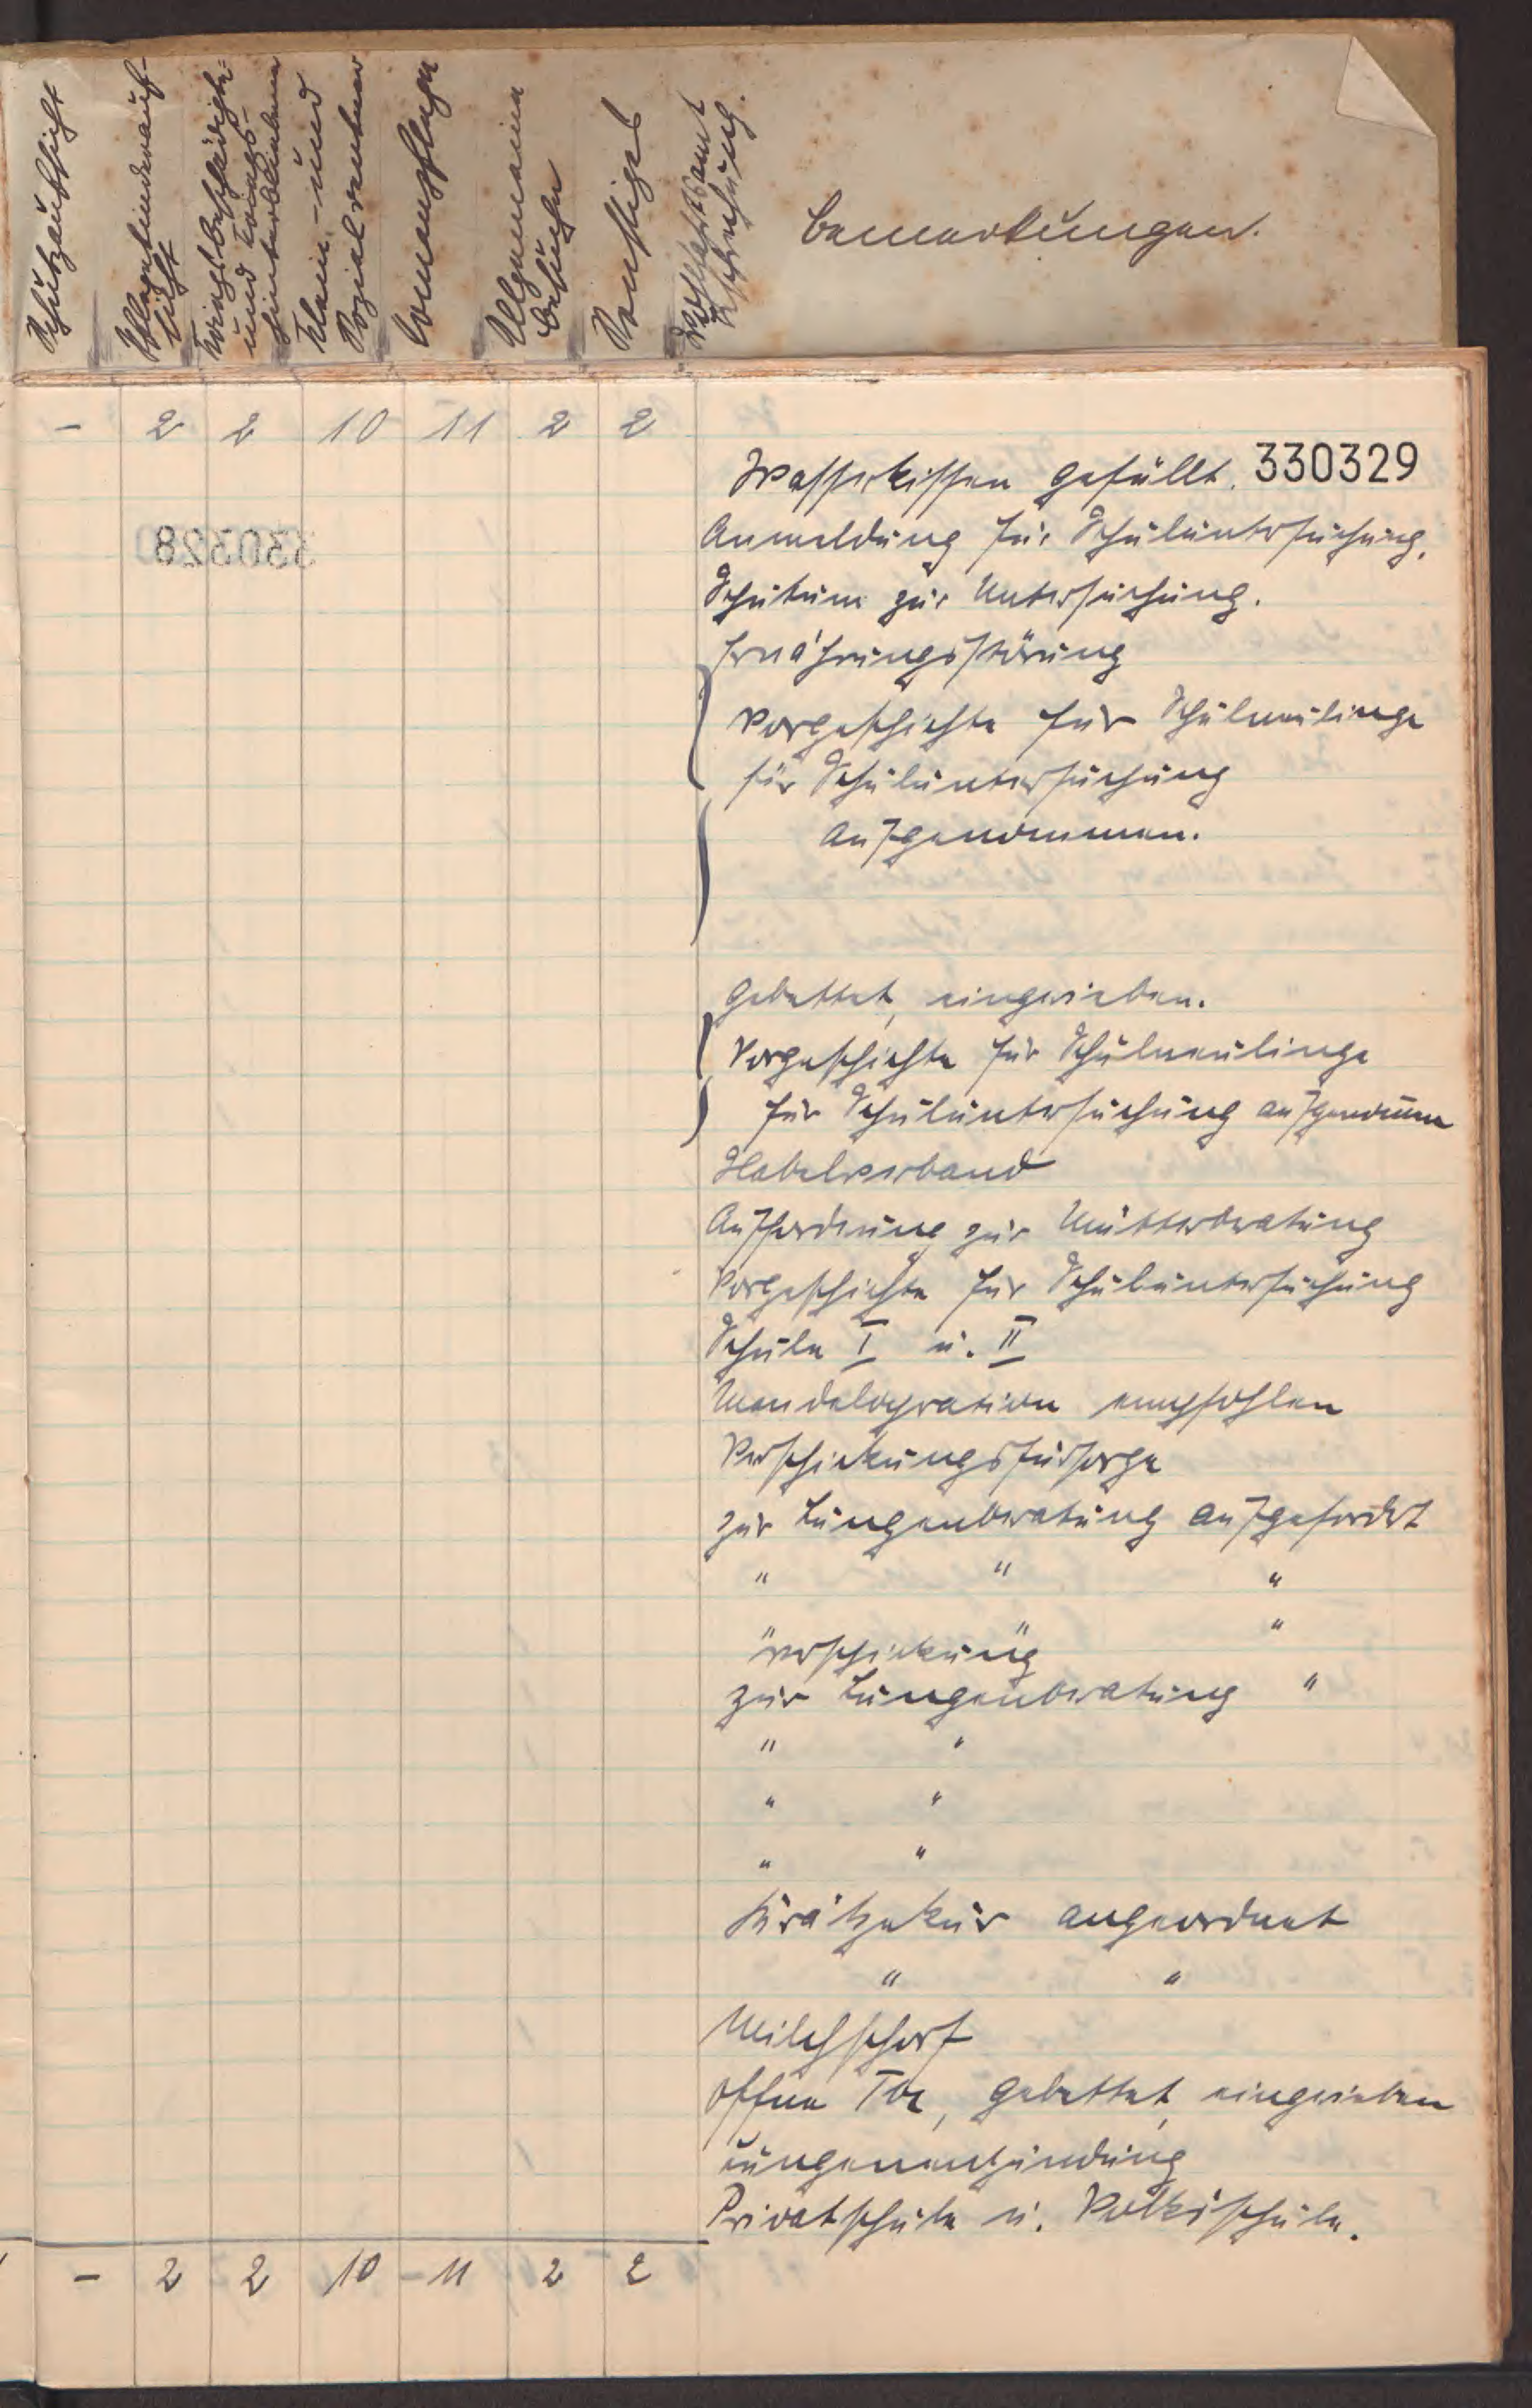 Schutzaufsicht
Pflegekinderauf-
sicht
Kriegsbeschädigte
und Kriegs-
hinterbliebene
Klein- und
Sozialrentner
Krankenpflege
Allgemeine
Besuche
Sonstiges
Bemerkungen.
- 2 2 10 11 2 2
Wasserkissen gefüllt. 330329
Anmeldung für Schuluntersuchung.
330328
zur Untersuchung.
Ernährungsstörung
Vorgeschichte für Schulneulinge
für Schuluntersuchung
aufgenommen.
Gebettet, eingerieben.
Vorgeschichte für Schulneulinge
für Schuluntersuchung aufgenommen
Nabelverband
Aufforderung zur Mütterberatung
Vorgeschichte für Schuluntersuchung
Schule I u. II
Mandeloperation empfohlen
Verschickungsfürsorge
zur Lungenberatung aufgefordert
" " "
" " "
Verschickung
zur Lungenberatung "
" "
" "
" "
Krätzekur angeordnet
" "
Milchschorf
offene Tbc, gebettet, eingerieben
Lungenentzündung
Privatschule u. Volksschule.
- 2 2 10 - 11 2 2